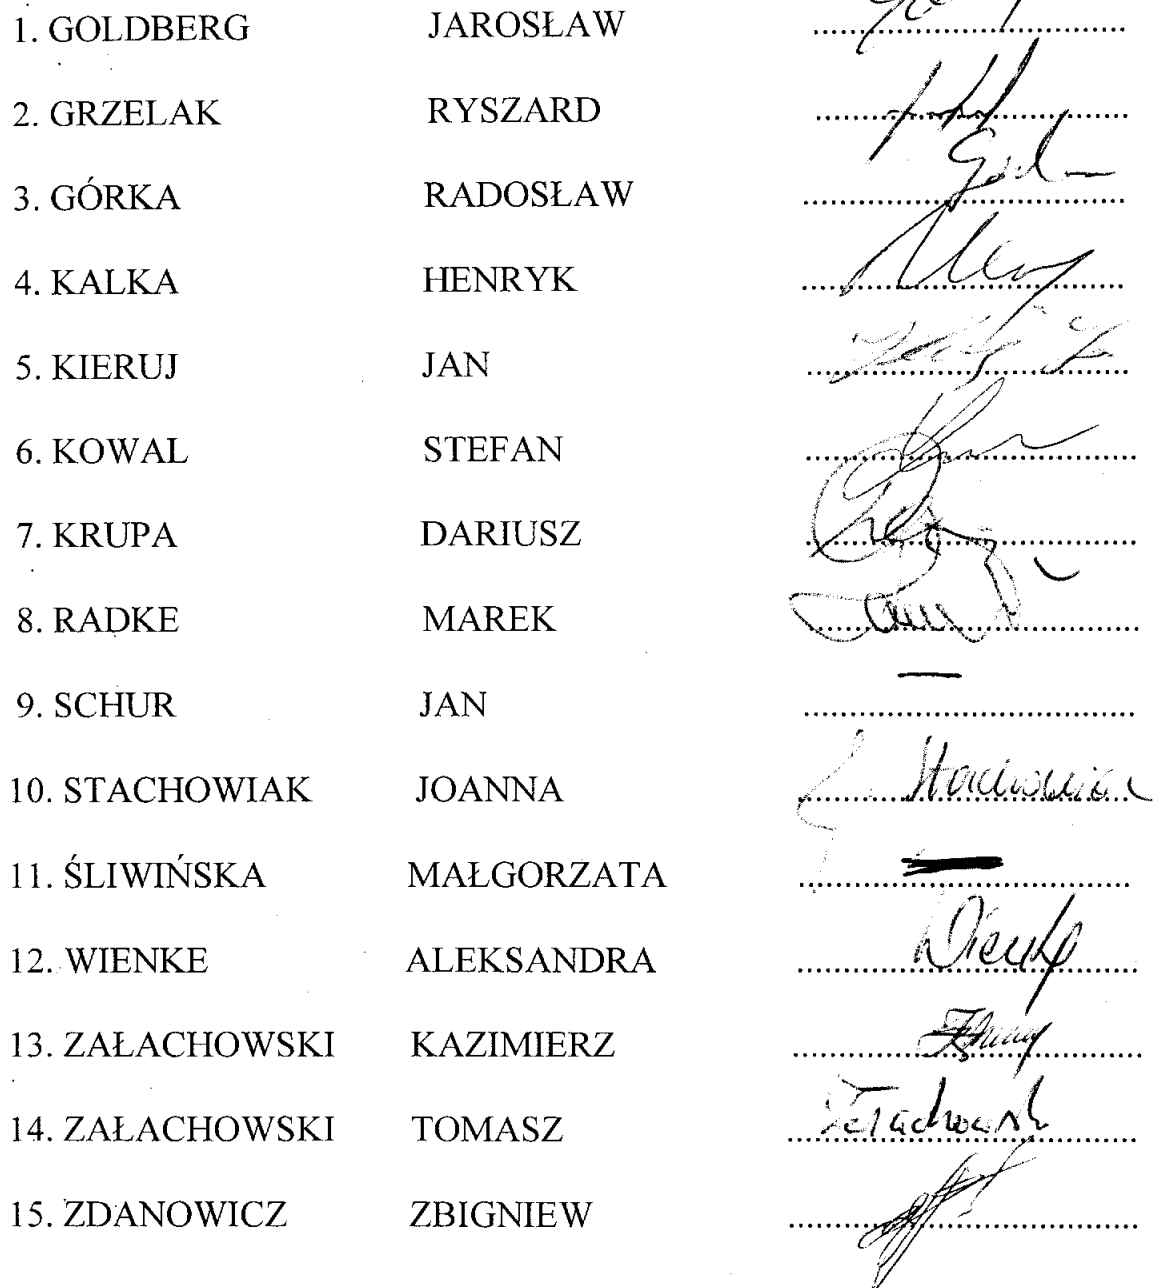 1. GOLDBERG JAROSŁAW
2. GRZELAK RYSZARD
3. GÓRKA RADOSŁAW
4. KALKA HENRYK
5. KIERUJ JAN
6. KOWAL STEFAN
7. KRUPA DARIUSZ
8. RADKE MAREK
9. SCHUR JAN —
10. STACHOWIAK JOANNA Stachowiak
11. ŚLIWIŃSKA MAŁGORZATA
12. WIENKE ALEKSANDRA Wienke
13. ZAŁACHOWSKI KAZIMIERZ
14. ZAŁACHOWSKI TOMASZ Załachowski
15. ZDANOWICZ ZBIGNIEW